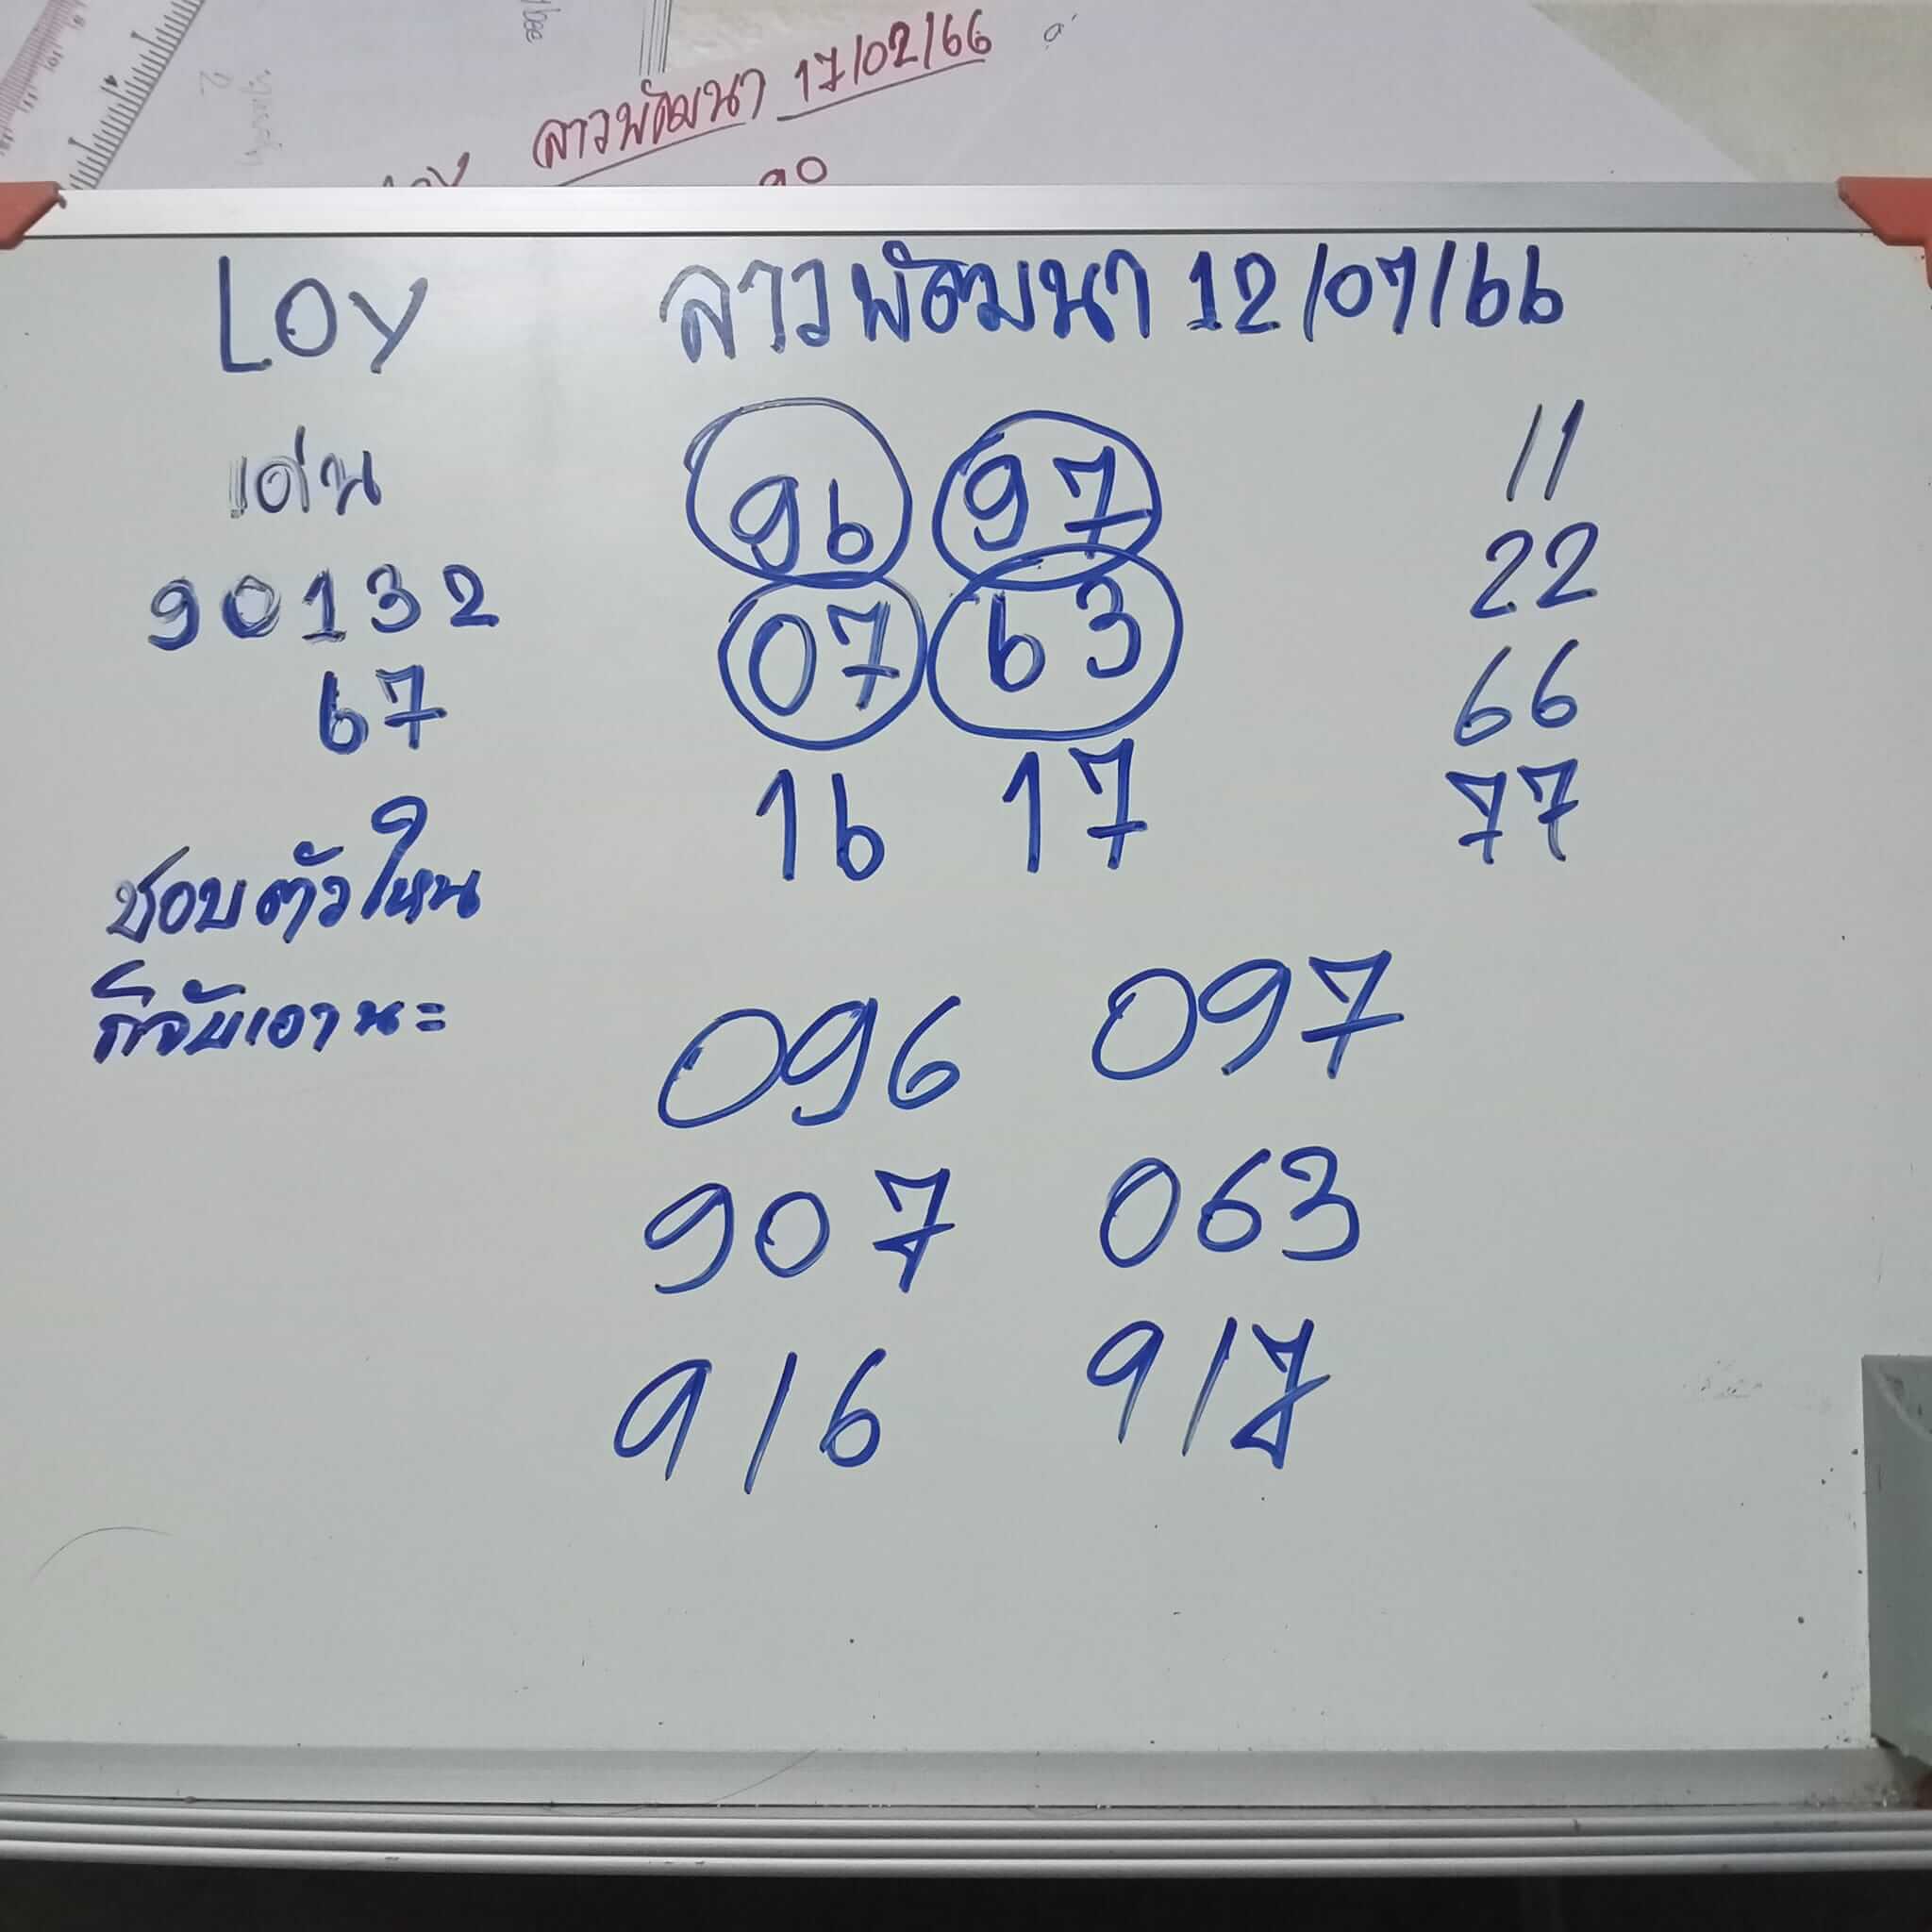 ลาวพัฒนา 17/02/66
90
LOY ลาวพัฒนา 12/07/66
เด่น
90132
67
ชอบตัวใหน
ก็จับเอานะ
96 97
07 63
16 17
11
22
66
77
096 097
907 063
916 917